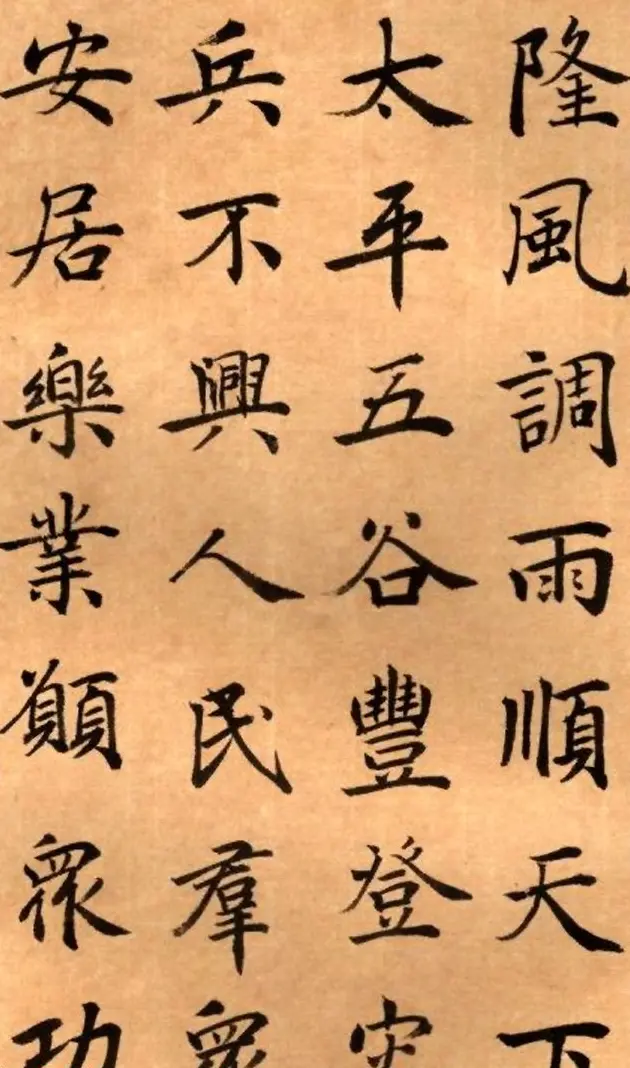 隆風調雨順天下
太平五谷豐登灾
兵不興人民羣眾
安居樂業願眾功